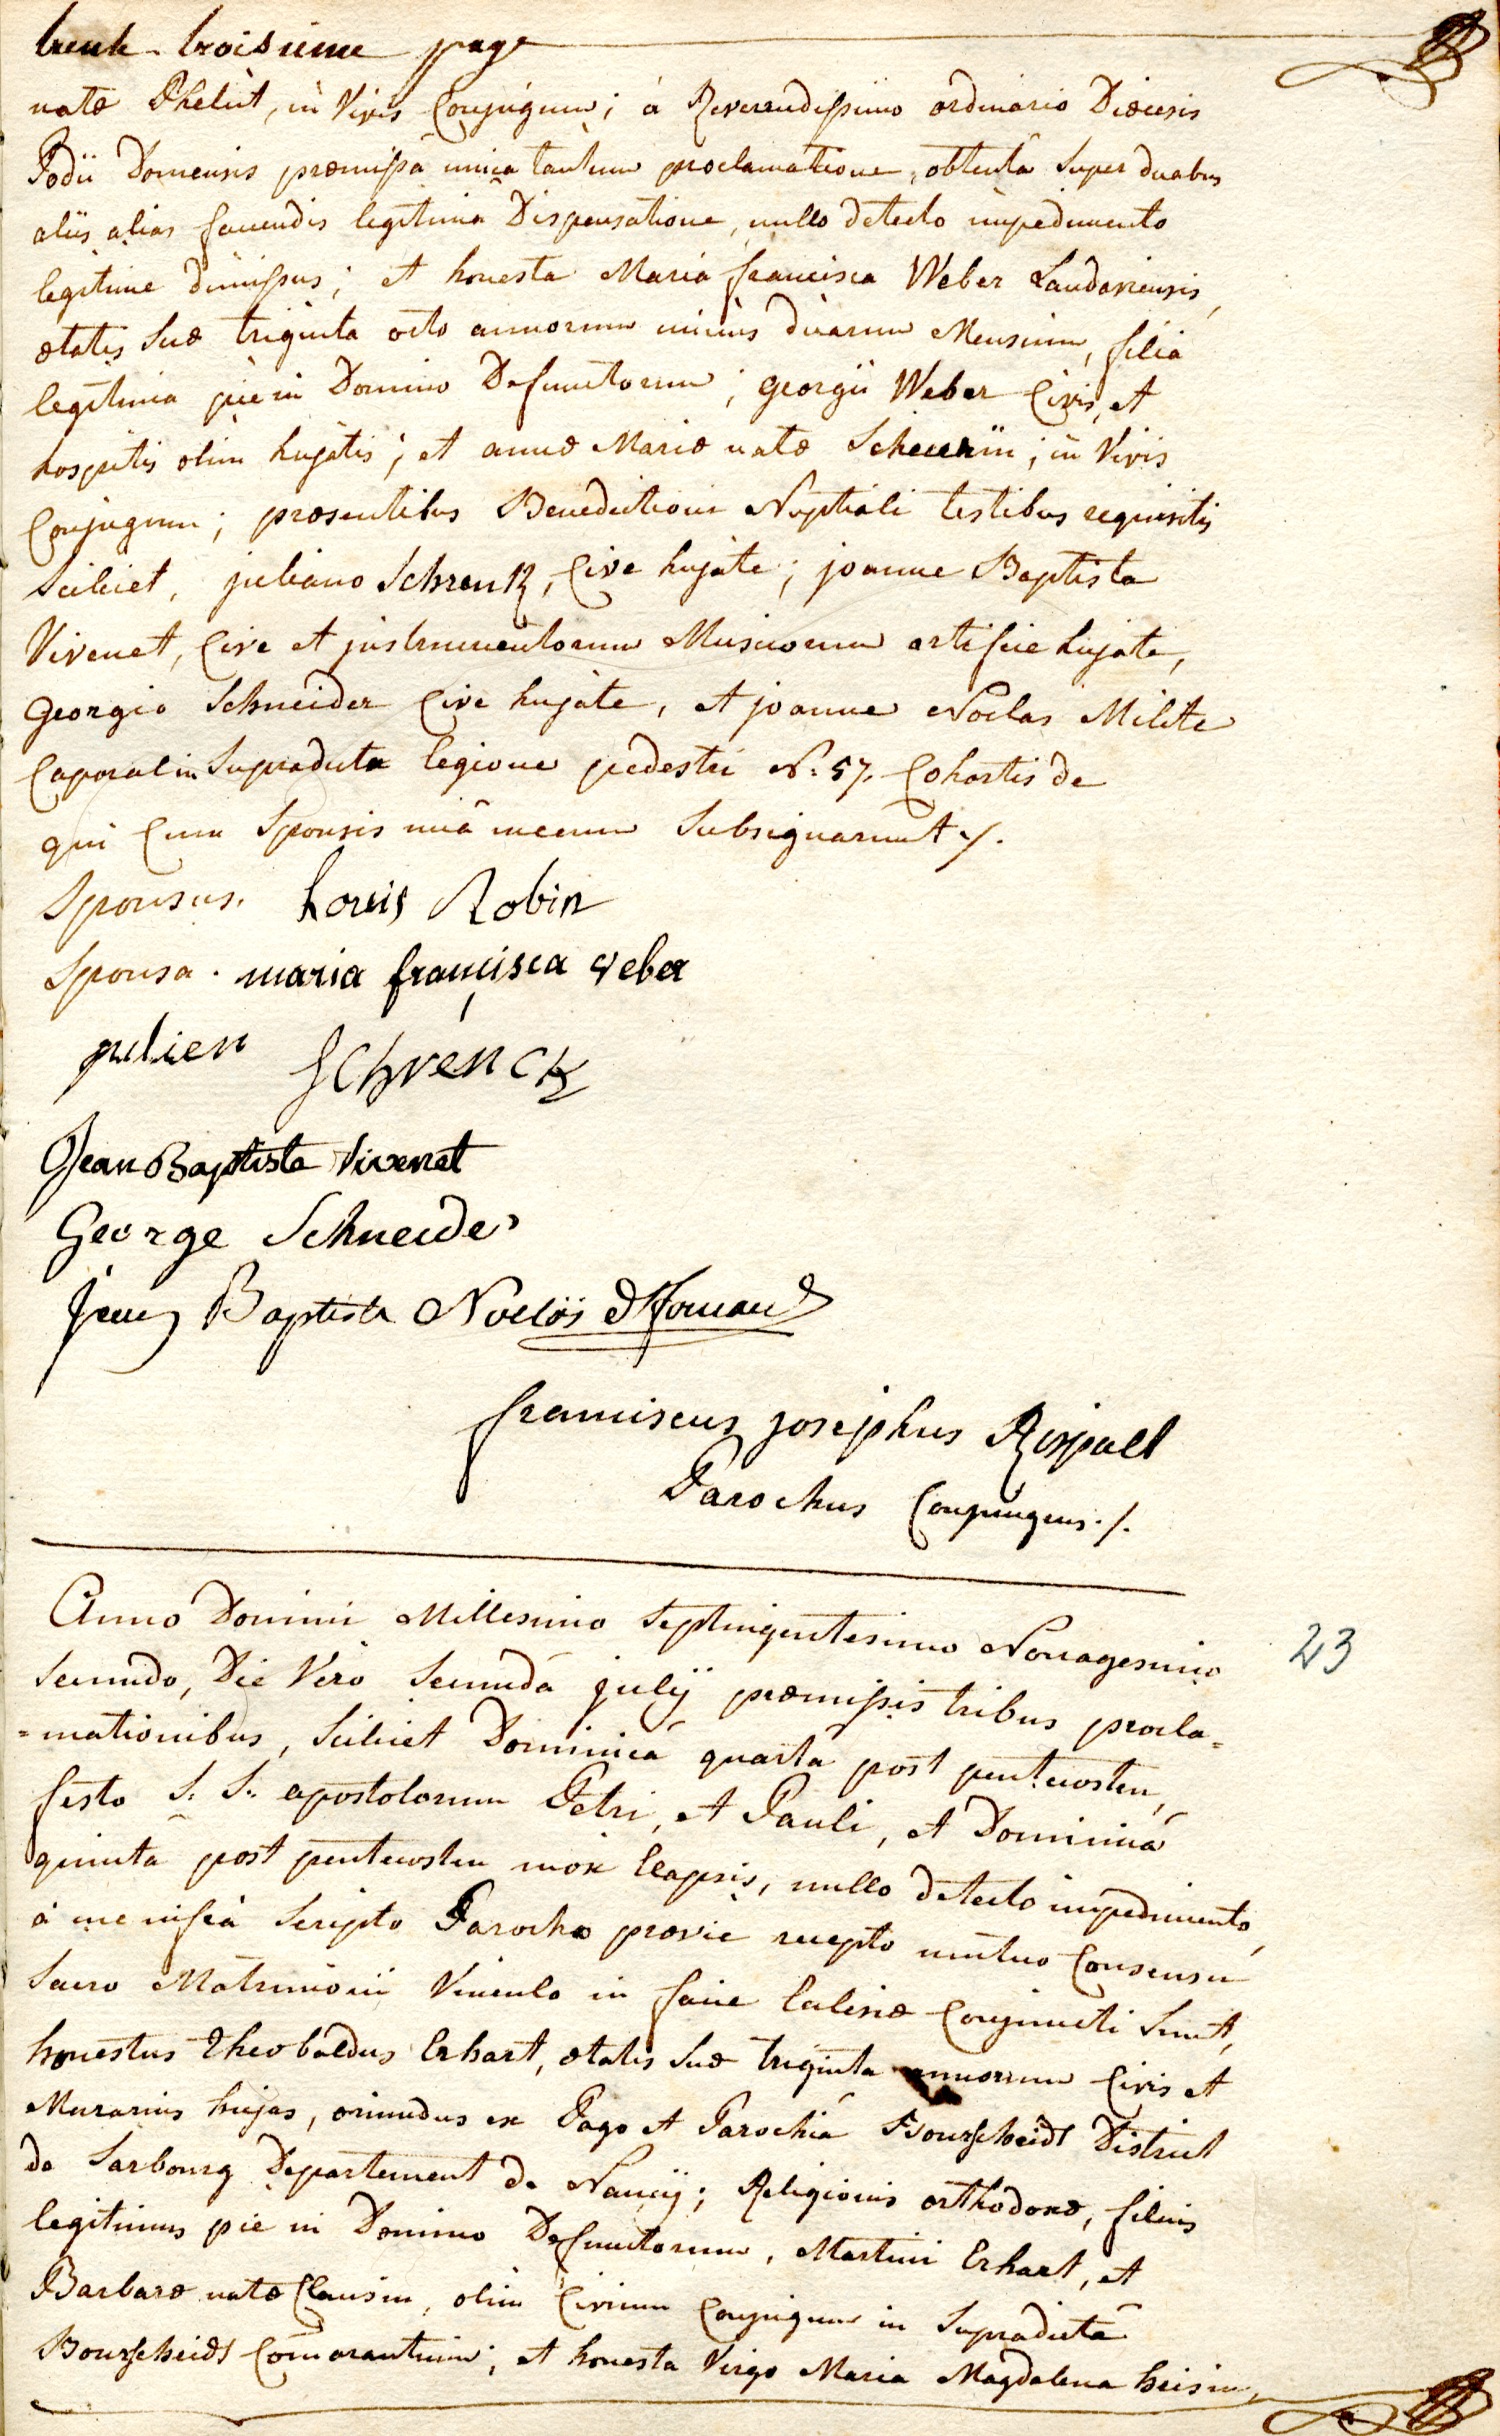 trente-troisieme page
natæ Phelut, in Vivis Conjugum; à Reverendissimo ordinario Diœcesis
Podii Domensis præmissâ unica tantum proclamatione, obtentâ Super duabus
aliis alias faciendis legitimâ Dispensatione, nullo detecto impedimento
legitime dimissus; et honesta Maria francisca Weber Landaviensis,
ætatis Suæ triginta octo annorum minus duarum Mensium, filia
legitima pie in Domino Defunctorum; georgii Weber Civis, et
hospitis olim hujatis; et annæ Mariæ natæ Scheuerin; in Vivis
Conjugum; præsentibus Benedictioni Nuptiali testibus requisitis
Scilicet, juliano Schrenk, Cive hujate; joanne Baptista
Vivenet, Cive et instrumentorum Musicorum artifice hujate,
georgio Schneider Cive hujate, et joanne Noclas Milite
Caporal in Supradicta legione pedestri N.º 57. Cohortis de
qui Cum Sponsis unâ mecum Subsignarunt ./.
Sponsus. Louis Robin
Sponsa. maria francisca weber
julien Schrenck
Jean Baptista Vivenat
George Schneider
Jean Baptista Noclas
franciscus josephus Rispalt
Parochus Conjungens ./.
Anno Domini Millesimo Septingentesimo Nonagesimo
Secundo, Die Vero Secundâ julij præmissis tribus procla=
=mationibus, Scilicet Dominicâ quartâ post pentecosten,
festo S. S. apostolorum Petri, et Pauli, et Dominicâ
quintâ post pentecosten mox elapsis, nullo detecto impedimento,
à me infrà Scripto Parocho prævie recepto mutuo Consensu
Sacro Matrimonii Vinculo in facie Eclesiæ Conjuncti Sunt,
honestus Theobaldus Erhart, ætatis Suæ triginta annorum Civis et
Murarius hujas, oriundus ex Pago et Parochiâ Bourscheidt District
de Sarbourg Departement de Nancij; Religionis orthodoxæ, filius
legitimus pie in Domino Defunctorum, Martini Erhart, et
Barbaræ natæ Clausin, olim Civium Conjugum in Supradictâ
Bourscheidt Comorantium; et honesta Virgo Maria Magdalena heisin,
23